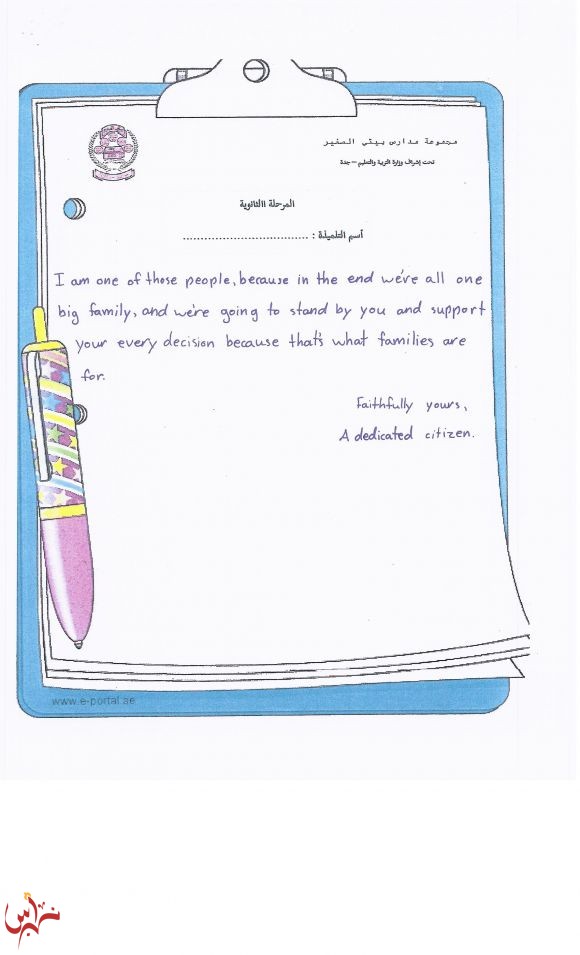 مجموعة مدارس بيتي الصغير
تحت إشراف وزارة التربية والتعليم – جدة
المرحلة الثانوية
أسم التلميذة : ..................................
I am one of those people, because in the end we're all one
big family, and we're going to stand by you and support
your every decision because that's what families are
for.
Faithfully yours,
A dedicated citizen.
www.e-portal.ae